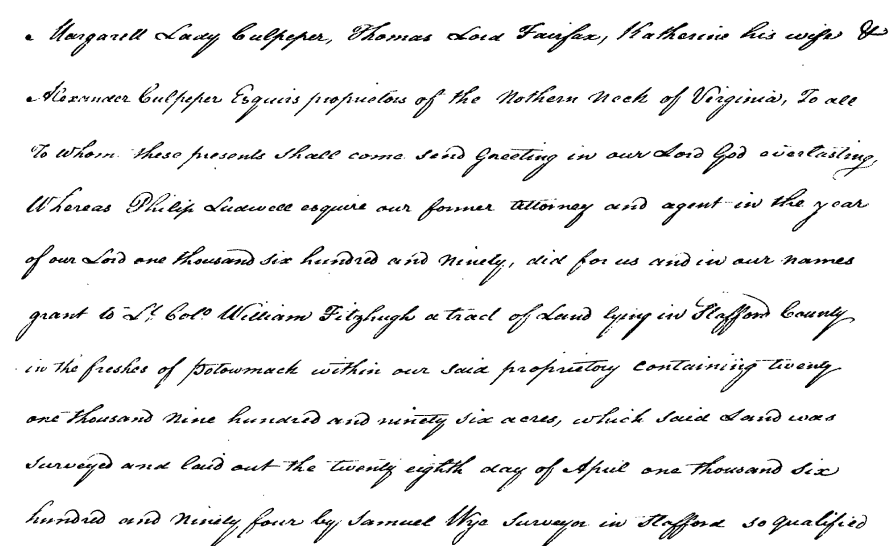 Margarett Lady Culpeper, Thomas Lord Fairfax, Katherine his wife &
Alexander Culpeper Esquis proprietors of the Nothern Neck of Virginia, To all
To whom these presents shall come send Greeting in our Lord God everlasting,
Whereas Philip Ludwell esquire our former Attorney and agent in the year
of our Lord one thousand six hundred and Ninety, did for us and in our names
grant to Lt. Colo William Fitzhugh a tract of Land lying in Stafford County
in the freshes of Potowmack within our said proprietory containing twenty
one thousand Nine hundred and ninety six acres, which said Land was
surveyed and laid out the twenty eighth day of April one thousand six
hundred and Ninety four by Samuel Wye Surveyor in Stafford so qualified